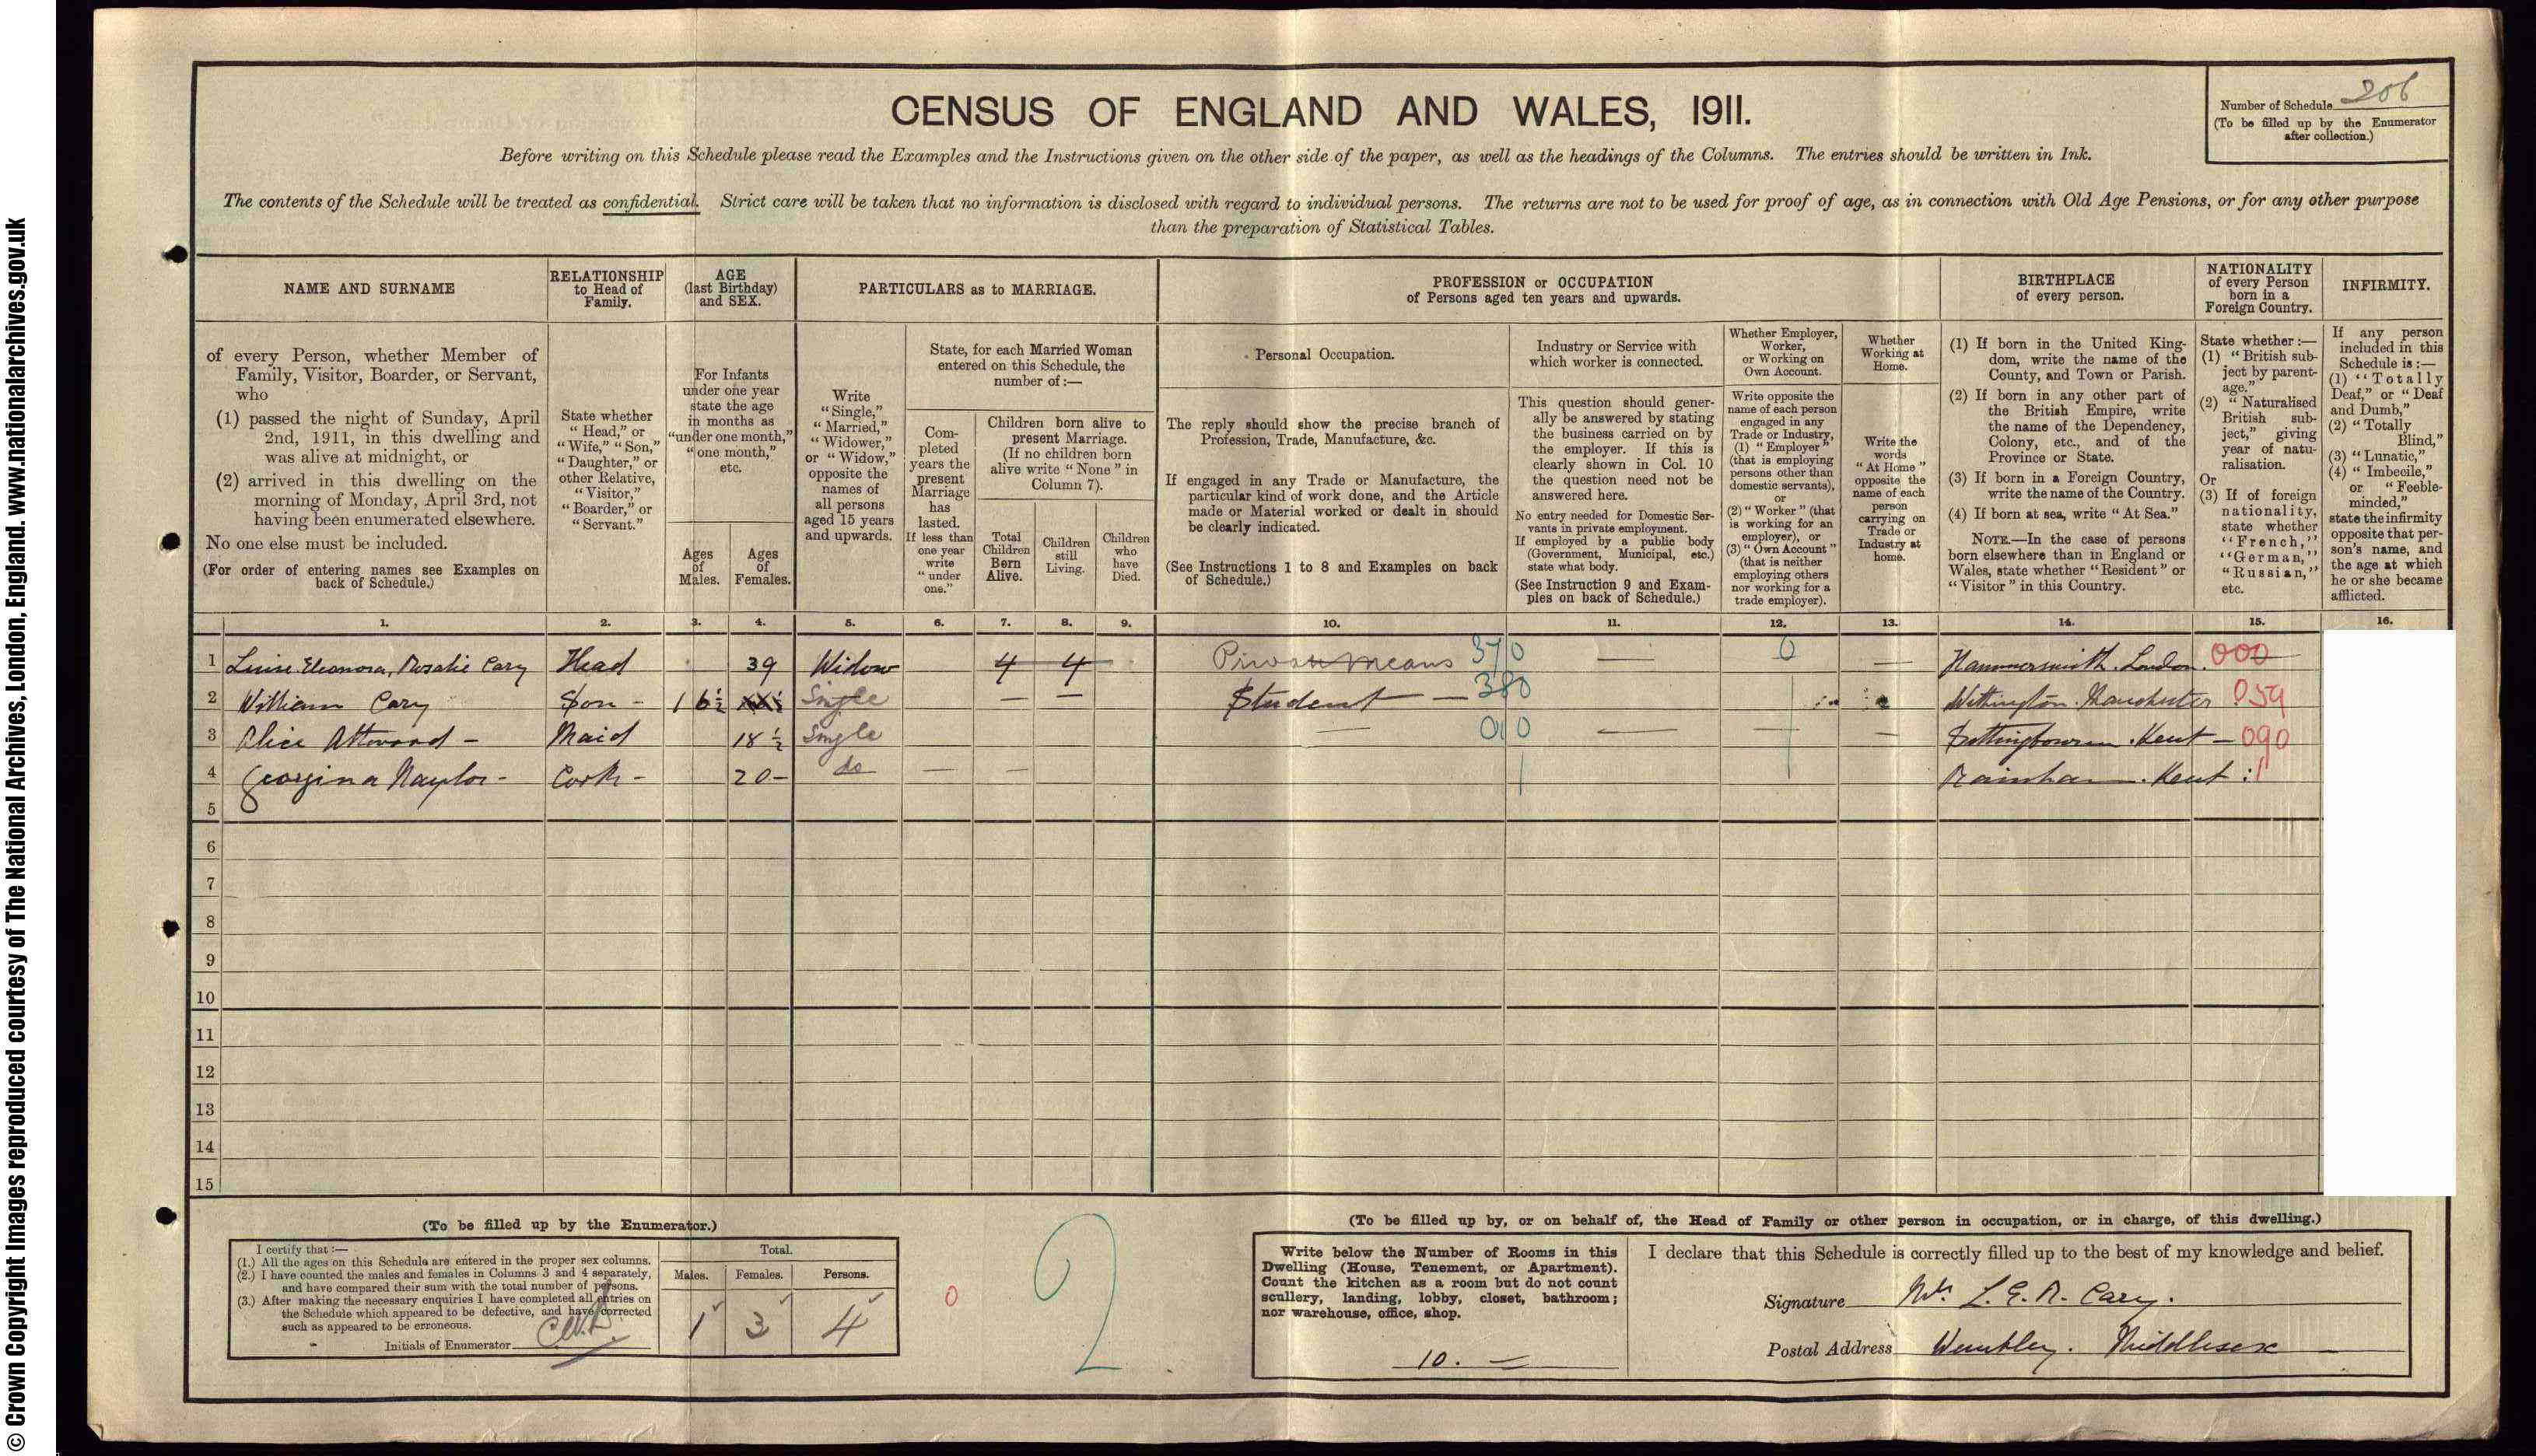 © Crown Copyright Images reproduced courtesy of The National Archives, London, England. www.nationalarchives.gov.uk
CENSUS OF ENGLAND AND WALES, 1911.
Number of Schedule 206
(To be filled up by the Enumerator
after collection.)
Before writing on this Schedule please read the Examples and the Instructions given on the other side of the paper, as well as the headings of the Columns. The entries should be written in Ink.
The contents of the Schedule will be treated as confidential. Strict care will be taken that no information is disclosed with regard to individual persons. The returns are not to be used for proof of age, as in connection with Old Age Pensions, or for any other purpose
than the preparation of Statistical Tables.
NAME AND SURNAME
of every Person, whether Member of
Family, Visitor, Boarder, or Servant,
who
(1) passed the night of Sunday, April
2nd, 1911, in this dwelling and
was alive at midnight, or
(2) arrived in this dwelling on the
morning of Monday, April 3rd, not
having been enumerated elsewhere.
No one else must be included.
(For order of entering names see Examples on
back of Schedule.)
RELATIONSHIP
to Head of
Family.
State whether
"Head," or
"Wife," "Son,"
"Daughter," or
other Relative,
"Visitor,"
"Boarder," or
"Servant."
AGE
(last Birthday)
and SEX.
For Infants
under one year
state the age
in months as
"under one month,"
"one month,"
etc.
Ages
of
Males.
Ages
of
Females.
PARTICULARS as to MARRIAGE.
Write
"Single,"
"Married,"
"Widower,"
or "Widow,"
opposite the
names of
all persons
aged 15 years
and upwards.
State, for each Married Woman
entered on this Schedule, the
number of :—
Com-
pleted
years the
present
Marriage
has
lasted.
If less than
one year
write
"under
one."
Children born alive to
present Marriage.
(If no children born
alive write "None" in
Column 7).
Total
Children
Born
Alive.
Children
still
Living.
Children
who
have
Died.
PROFESSION or OCCUPATION
of Persons aged ten years and upwards.
Personal Occupation.
The reply should show the precise branch of
Profession, Trade, Manufacture, &c.
If engaged in any Trade or Manufacture, the
particular kind of work done, and the Article
made or Material worked or dealt in should
be clearly indicated.
(See Instructions 1 to 8 and Examples on back
of Schedule.)
Industry or Service with
which worker is connected.
This question should gener-
ally be answered by stating
the business carried on by
the employer. If this is
clearly shown in Col. 10
the question need not be
answered here.
No entry needed for Domestic Ser-
vants in private employment.
If employed by a public body
(Government, Municipal, etc.)
state what body.
(See Instruction 9 and Exam-
ples on back of Schedule.)
Whether Employer,
Worker,
or Working on
Own Account.
Write opposite the
name of each person
engaged in any
Trade or Industry,
(1) "Employer"
(that is employing
persons other than
domestic servants),
or
(2) "Worker" (that
is working for an
employer), or
(3) "Own Account"
(that is neither
employing others
nor working for a
trade employer).
Whether
Working at
Home.
Write the
words
"At Home"
opposite the
name of each
person
carrying on
Trade or
Industry at
home.
BIRTHPLACE
of every person.
(1) If born in the United King-
dom, write the name of the
County, and Town or Parish.
(2) If born in any other part of
the British Empire, write
the name of the Dependency,
Colony, etc., and of the
Province or State.
(3) If born in a Foreign Country,
write the name of the Country.
(4) If born at sea, write "At Sea."
NOTE.—In the case of persons
born elsewhere than in England or
Wales, state whether "Resident" or
"Visitor" in this Country.
NATIONALITY
of every Person
born in a
Foreign Country.
State whether :—
(1) "British sub-
ject by parent-
age."
(2) "Naturalised
British sub-
ject," giving
year of natu-
ralisation.
Or
(3) If of foreign
nationality,
state whether
"French,"
"German,"
"Russian,"
etc.
INFIRMITY.
If any person
included in this
Schedule is :—
(1) "Totally
Deaf," or "Deaf
and Dumb,"
(2) "Totally
Blind,"
(3) "Lunatic,"
(4) "Imbecile,"
or "Feeble-
minded,"
state the infirmity
opposite that per-
son's name, and
the age at which
he or she became
afflicted.
1. 2. 3. 4. 5. 6. 7. 8. 9. 10. 11. 12. 13. 14. 15. 16.
1 Luise Eleanora, Rosalie Cary Head 39 Widow 4 4 Private Means 370 0 Hammersmith. London. 000
2 William Cary Son 16½ Single Student 380 Withington Manchester 059
3 Alice Attwood Maid 18½ Single 010 Sittingbourne. Kent 090
4 Georgina Naylor Cook 20 do Rainham. Kent
5
6
7
8
9
10
11
12
13
14
15
(To be filled up by the Enumerator.)
I certify that :—
(1.) All the ages on this Schedule are entered in the proper sex columns.
(2.) I have counted the males and females in Columns 3 and 4 separately,
and have compared their sum with the total number of persons.
(3.) After making the necessary enquiries I have completed all entries on
the Schedule which appeared to be defective, and have corrected
such as appeared to be erroneous.
Initials of Enumerator
Total.
Males. Females. Persons.
1 3 4
0
0
2
(To be filled up by, or on behalf of, the Head of Family or other person in occupation, or in charge, of this dwelling.)
Write below the Number of Rooms in this
Dwelling (House, Tenement, or Apartment).
Count the kitchen as a room but do not count
scullery, landing, lobby, closet, bathroom;
nor warehouse, office, shop.
10.
I declare that this Schedule is correctly filled up to the best of my knowledge and belief.
Signature Mrs L. E. R. Cary.
Postal Address Wembley. Middlesex